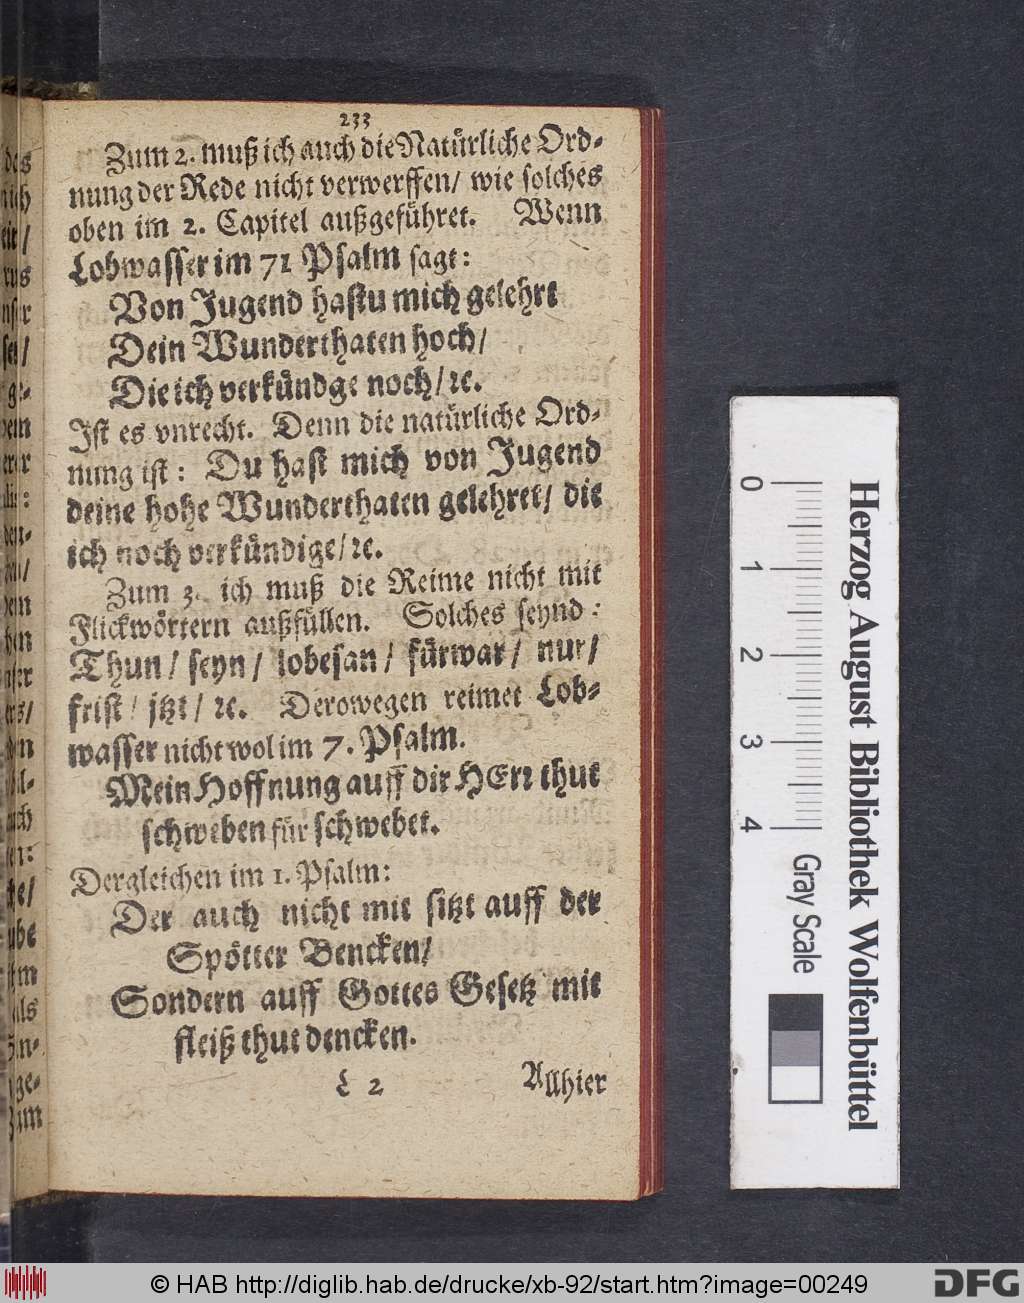 233
Zum 2. muß ich auch die Natürliche Ord-
nung der Rede nicht verwerffen/ wie solches
oben im 2. Capitel außgeführet. Wenn
Lobwasser im 71 Psalm sagt:
Von Jugend hastu mich gelehrt
Dein Wunderthaten hoch/
Die ich verkündge noch/ ꝛc.
Ist es vnrecht. Denn die natürliche Ord-
nung ist: Du hast mich von Jugend
deine hohe Wunderthaten gelehret/ die
ich noch verkündige/ ꝛc.
Zum 3. ich muß die Reime nicht mit
Flickwörtern außfüllen. Solches seynd:
Thun/ seyn/ lobesan/ fürwar/ nur/
frist/ jtzt/ ꝛc. Derowegen reimet Lob-
wasser nicht wol im 7. Psalm.
Mein Hoffnung auff dir HErr thut
schweben für schwebet.
Dergleichen im 1. Psalm:
Der auch nicht mit sitzt auff der
Spötter Bencken/
Sondern auff Gottes Gesetz mit
fleiß thut dencken.
L 2 Allhier
0 1 2 3 4
Gray Scale
Herzog August Bibliothek Wolfenbüttel
© HAB http://diglib.hab.de/drucke/xb-92/start.htm?image=00249
DFG